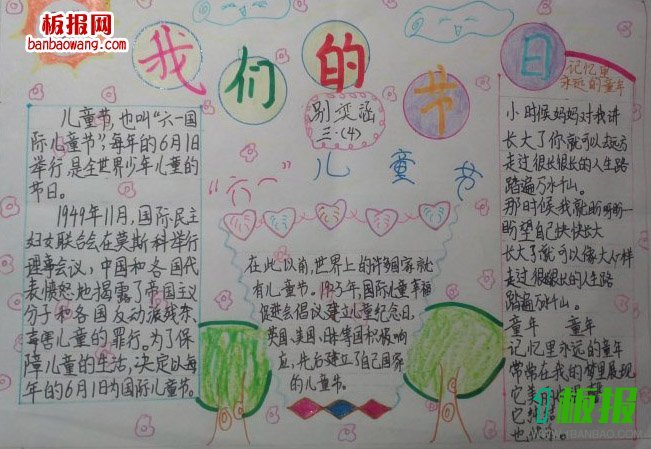 板报网
banbaowang.com
我们的节日
别奕涵
三·(4)
“六一”儿童节
记忆里
永远的童年
儿童节,也叫“六一国
际儿童节”,每年的6月1日
举行,是全世界少年儿童的
节日。
1949年11月,国际民主
妇女联合会在莫斯科举行
理事会议,中国和各国代
表愤怒地揭露了帝国主义
分子和各国反动派残杀、
毒害儿童的罪行。为了保
障儿童的生活,决定以每
年的6月1日为国际儿童节。
在此以前,世界上的许多国家就
有儿童节。1925年,国际儿童幸福
促进会倡议建立儿童纪念日,
英国、美国、日本等国积极响
应,先后建立了自己国家
的儿童节。
小时候妈妈对我讲
长大了你就可以去远方
走过很长很长的人生路
踏遍万水千山。
那时候我就盼啊盼
盼望自己快快长大
长大了就可以像大人一样
走过很长很长的人生路
踏遍万水千山。
童年 童年
记忆里永远的童年
常常在我的梦里展现
它
它
也
板报
WWW.1BANBAO.COM